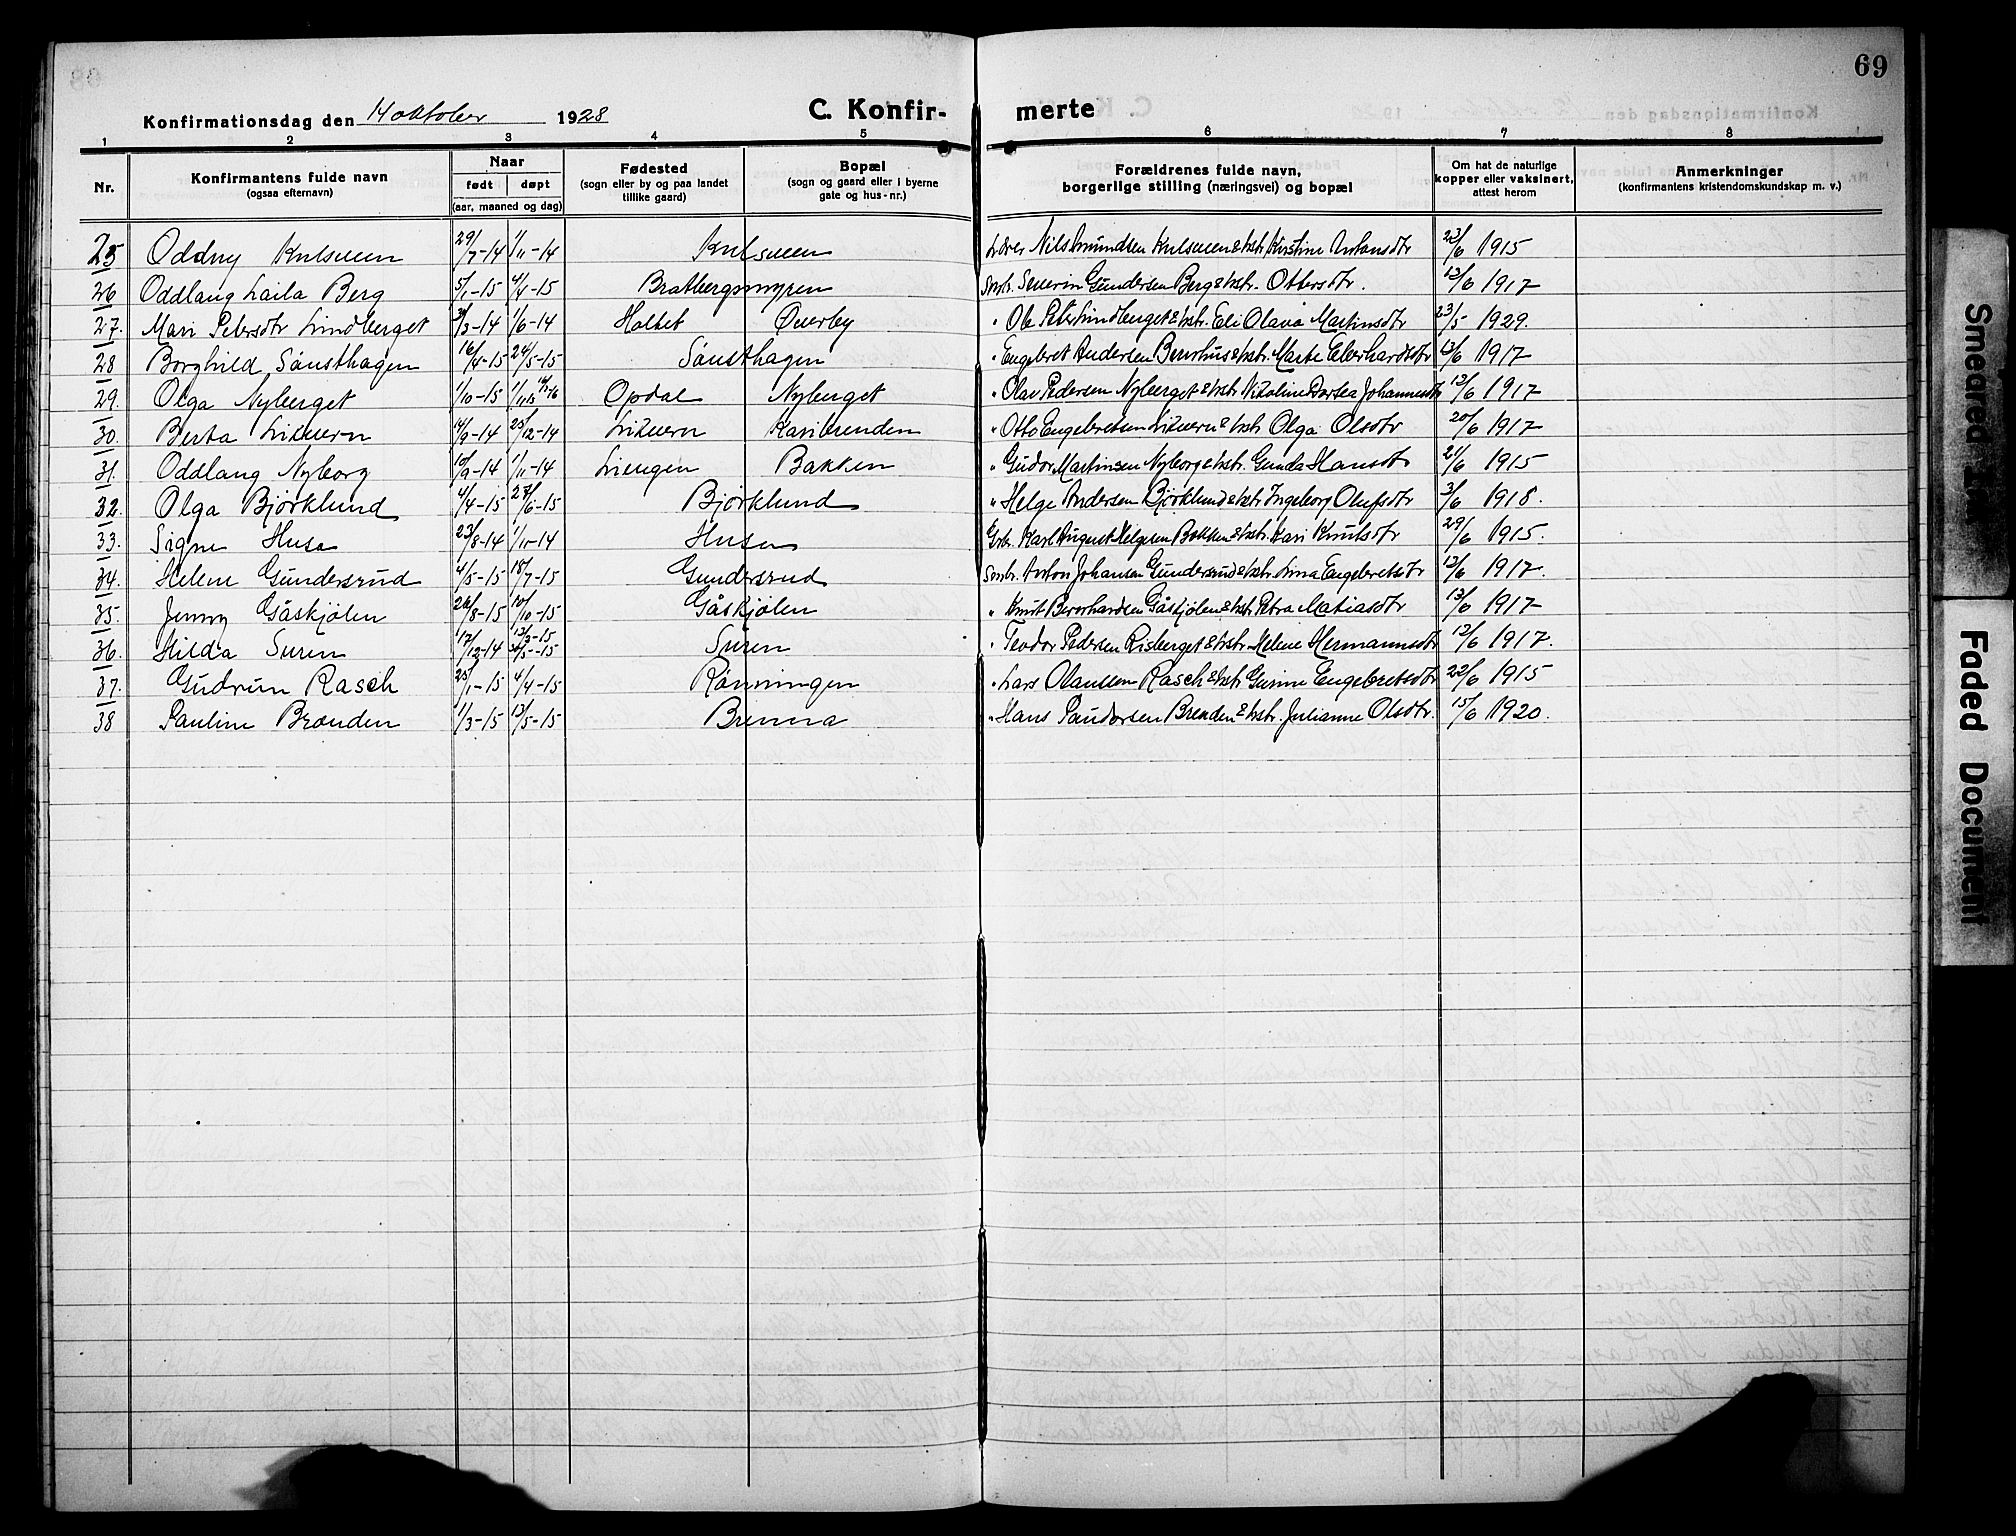 69
Konfirmationsdag den 14 oktober 1928
C. Konfir- merte
1 2 3 4 5 6 7 8
Nr.
Konfirmantens fulde navn
(ogsaa efternavn)
Naar
født døpt
(aar, maaned og dag)
Fødested
(sogn eller by og paa landet
tillike gaard)
Bopæl
(sogn og gaard eller i byerne
gate og hus-nr.)
Forældrenes fulde navn,
borgerlige stilling (næringsvei) og bopæl
Om hat de naturlige
kopper eller vaksinert,
attest herom
Anmerkninger
(konfirmantens kristendomskundskap m. v.)
25 Oddny Kulsveen 29/7-14 1/11-14 Kulsveen Lærer Nils Amundsen Kulsveen & hstr. Kirstine Antonsdtr 23/6 1915
26 Oddlaug Laila Berg 5/1-15 4/4-15 Bratbergsmyren Smbr. Severin Gundersen Berg & hstr. Ottersdtr. 13/6 1917
27. Mari Petersdtr Lindberget /3-14 1/6-14 Holtet Øverby " Ole Peter Lindberget & hstr. Eli Olava Martinsdtr 23/5 1929.
28 Borghild Sønsthagen 16/4-15 24/5-15 Sønsthagen " Engebret Andersen & hstr. Marte Eberhardsdtr 13/6 1917
29. Olga Nyberget 1/10-15 Opdal Nyberget " Olav Pedersen Nyberget & hstr. Dortea Johannesdtr 13/6 1917
30. Berta Likvern 14/9-14 25/12-14 Likvern Karibrenden " Otto Engebretsen Likvern & hstr. Olga Olsdtr 20/6 1917
31. Oddlaug Nyborg 10/9-14 1/11-14 Liengen Bakken " Gudor Martinsen Nyborg & hstr. Gunda Hansdtr 21/6 1915
32. Olga Bjørklund 4/4-15 27/6-15 Bjørklund " Helge Andersen Bjørklund & hstr Ingeborg Olufsdtr 3/6 1918.
33. Signe Husa 23/8-14 1/11-14 Husa Gbr. Karl August Helgesen Bakken & hstr. Kari Knutsdtr 29/6 1915.
34. Helene Gundersrud 4/5-15 18/7-15 Gundersrud Smbr. Anton Johansen Gundersrud & hstr. Lina Engebretsdtr 13/6 1917.
35. Jenny Gåskjølen 26/8-15 10/10-15 Gåskjølen " Knut Bernhardsen Gåskjølen & hstr. Petra Matiasdtr 13/6 1917
36. Hilda Suren 17/12-14 13/3-15 /5-15 Suren " Teodor Pedersen Risberget & hstr. Helene Hermannsdtr 12/6 1917.
37. Gudrun Rasch 25/1-15 4/4-15 Rønningen " Lars Olaussen Rasch & hstr Gunine Engebretsdtr 22/6 1915
38 Pauline Brænden 1/3-15 13/5-15 Brenna " Hans Paudersen Brenden & hstr. Julianne Olsdtr. 15/6 1920.
Smeared Ink
Faded Document